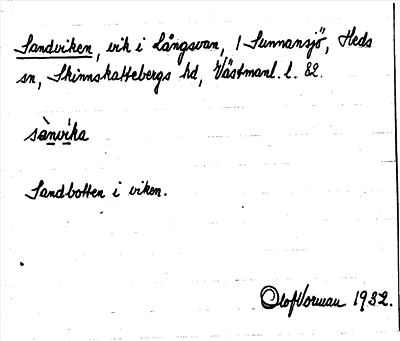 Sandviken, vik i Långsvan, / Sunnansjö, Heds
sn, Skinnskattebergs hd, Västmanl. l. 82.
sànvika
Sandbotten i viken.
Olof Vorman 1932.